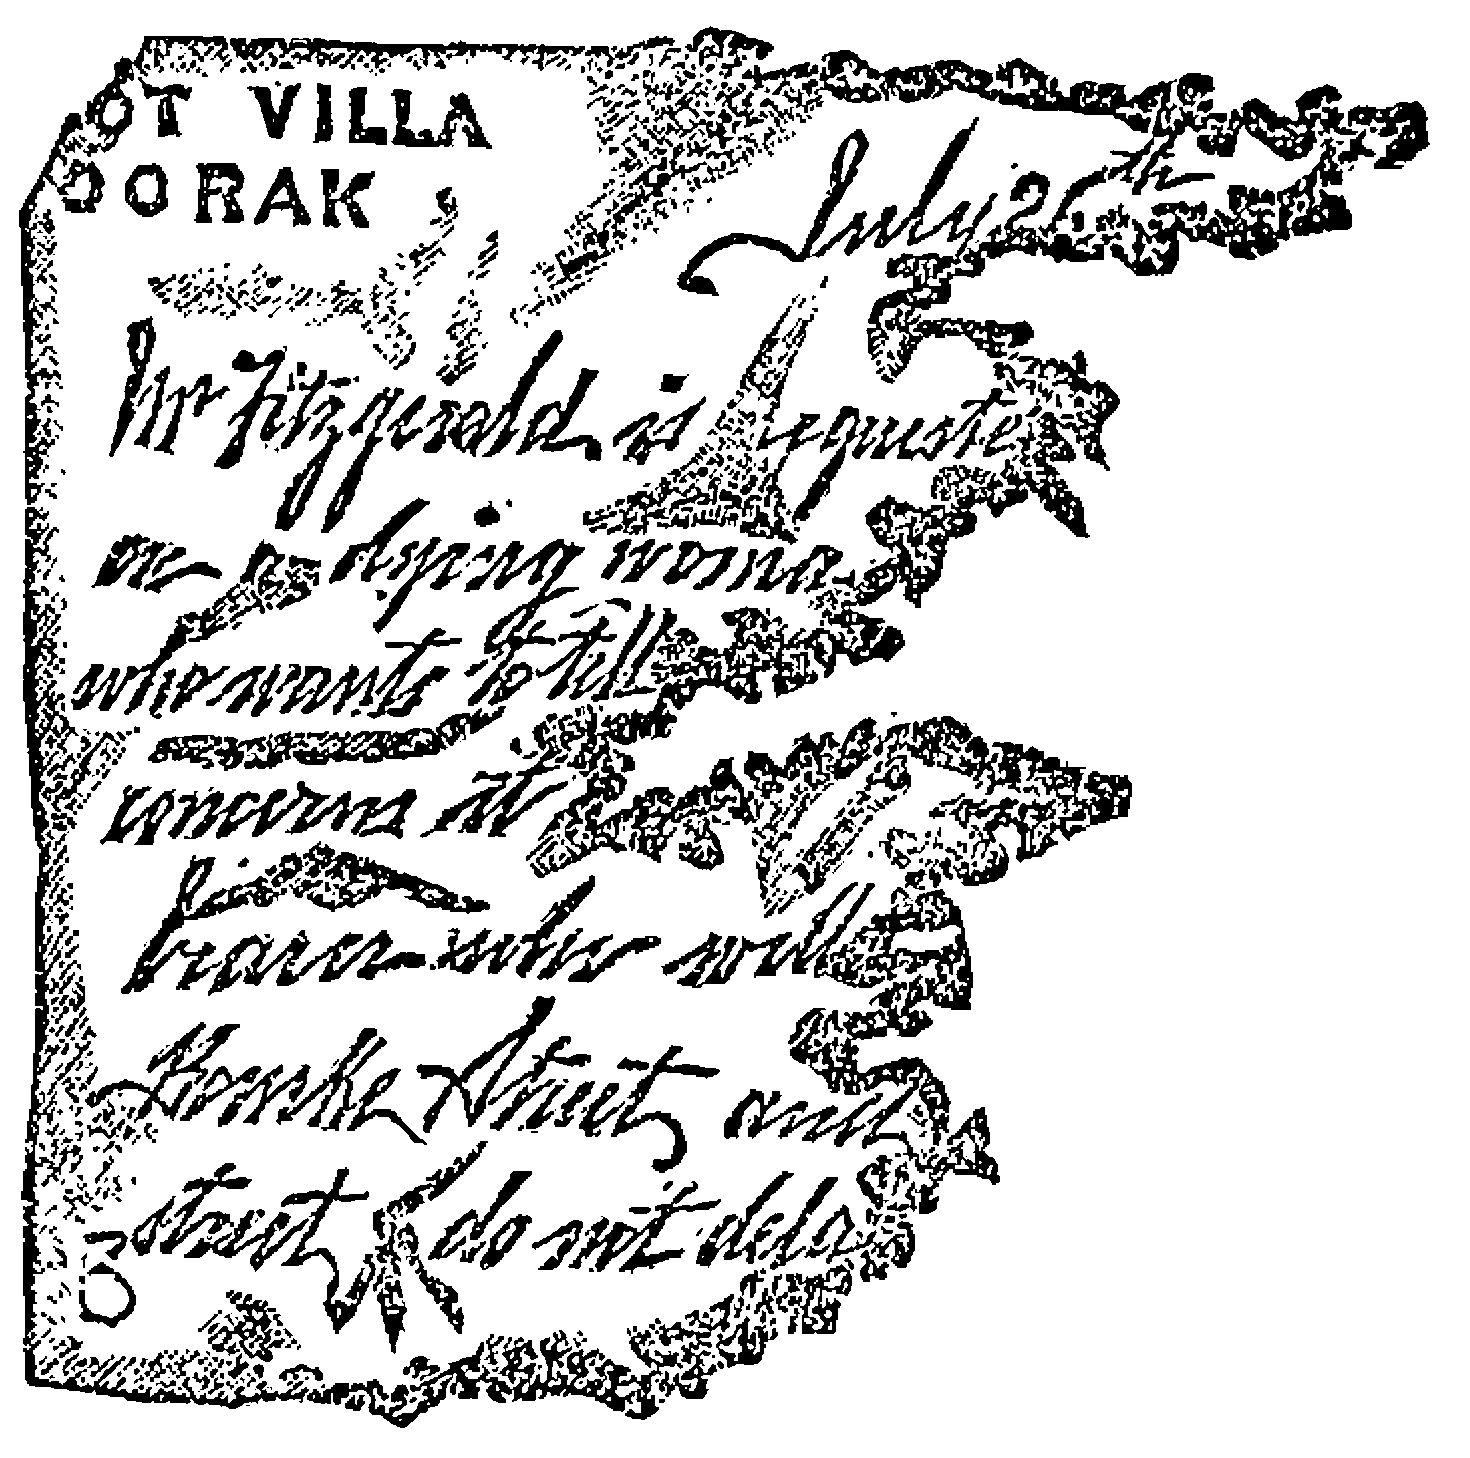 OT VILLA
OORAK
July 26th
Mr Fitzgerald is requeste
on a dying woma
who wants to tell
concerns at
bearer who will
Bourke Street and
street do not dela